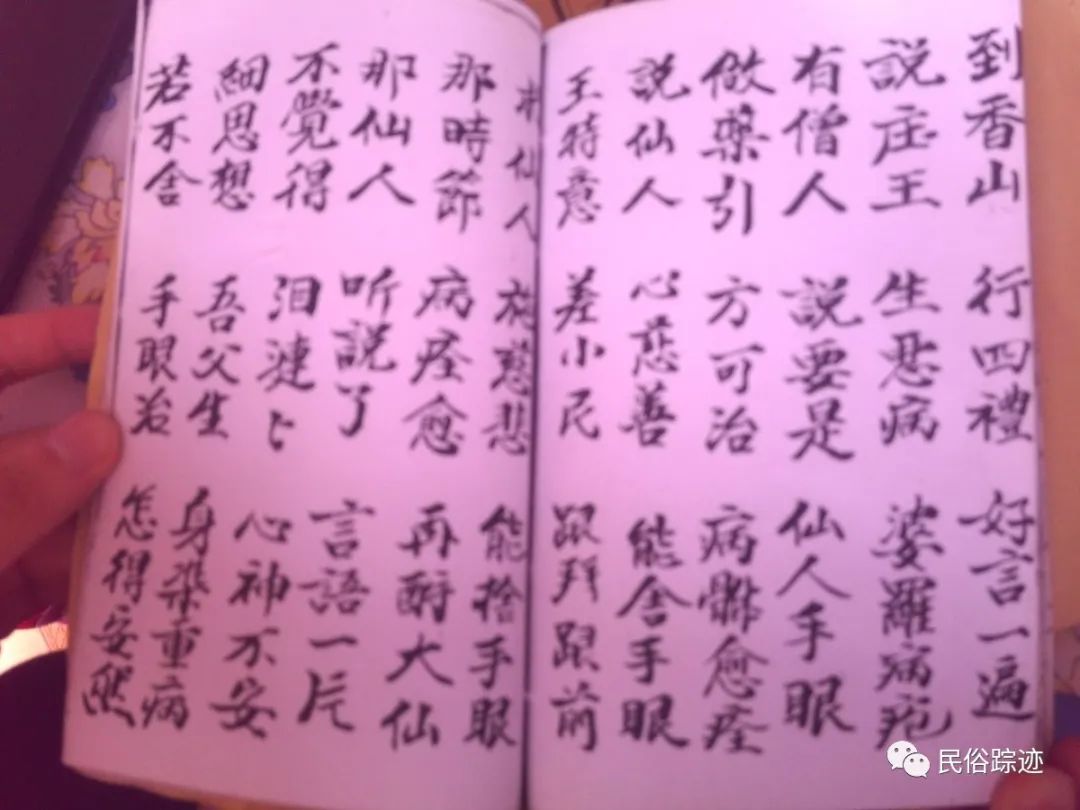 到香山 行四禮 好言一遍
説庄王 生惡病 婆羅病疤
有僧人 説要是 仙人手眼
做藥引 方可治 病愈痊
説仙人 心慈善 能舍手眼
王特意 差小民 跟拜跟前
求仙人 施慈悲 能捨手眼
那時節 病痊愈 再酧大仙
那仙人 听説了 言語一片
不覺得 泪漣〻 心神不安
細思想 吾父生 身染重病
若不舍 手眼治 怎得安然
民俗踪迹